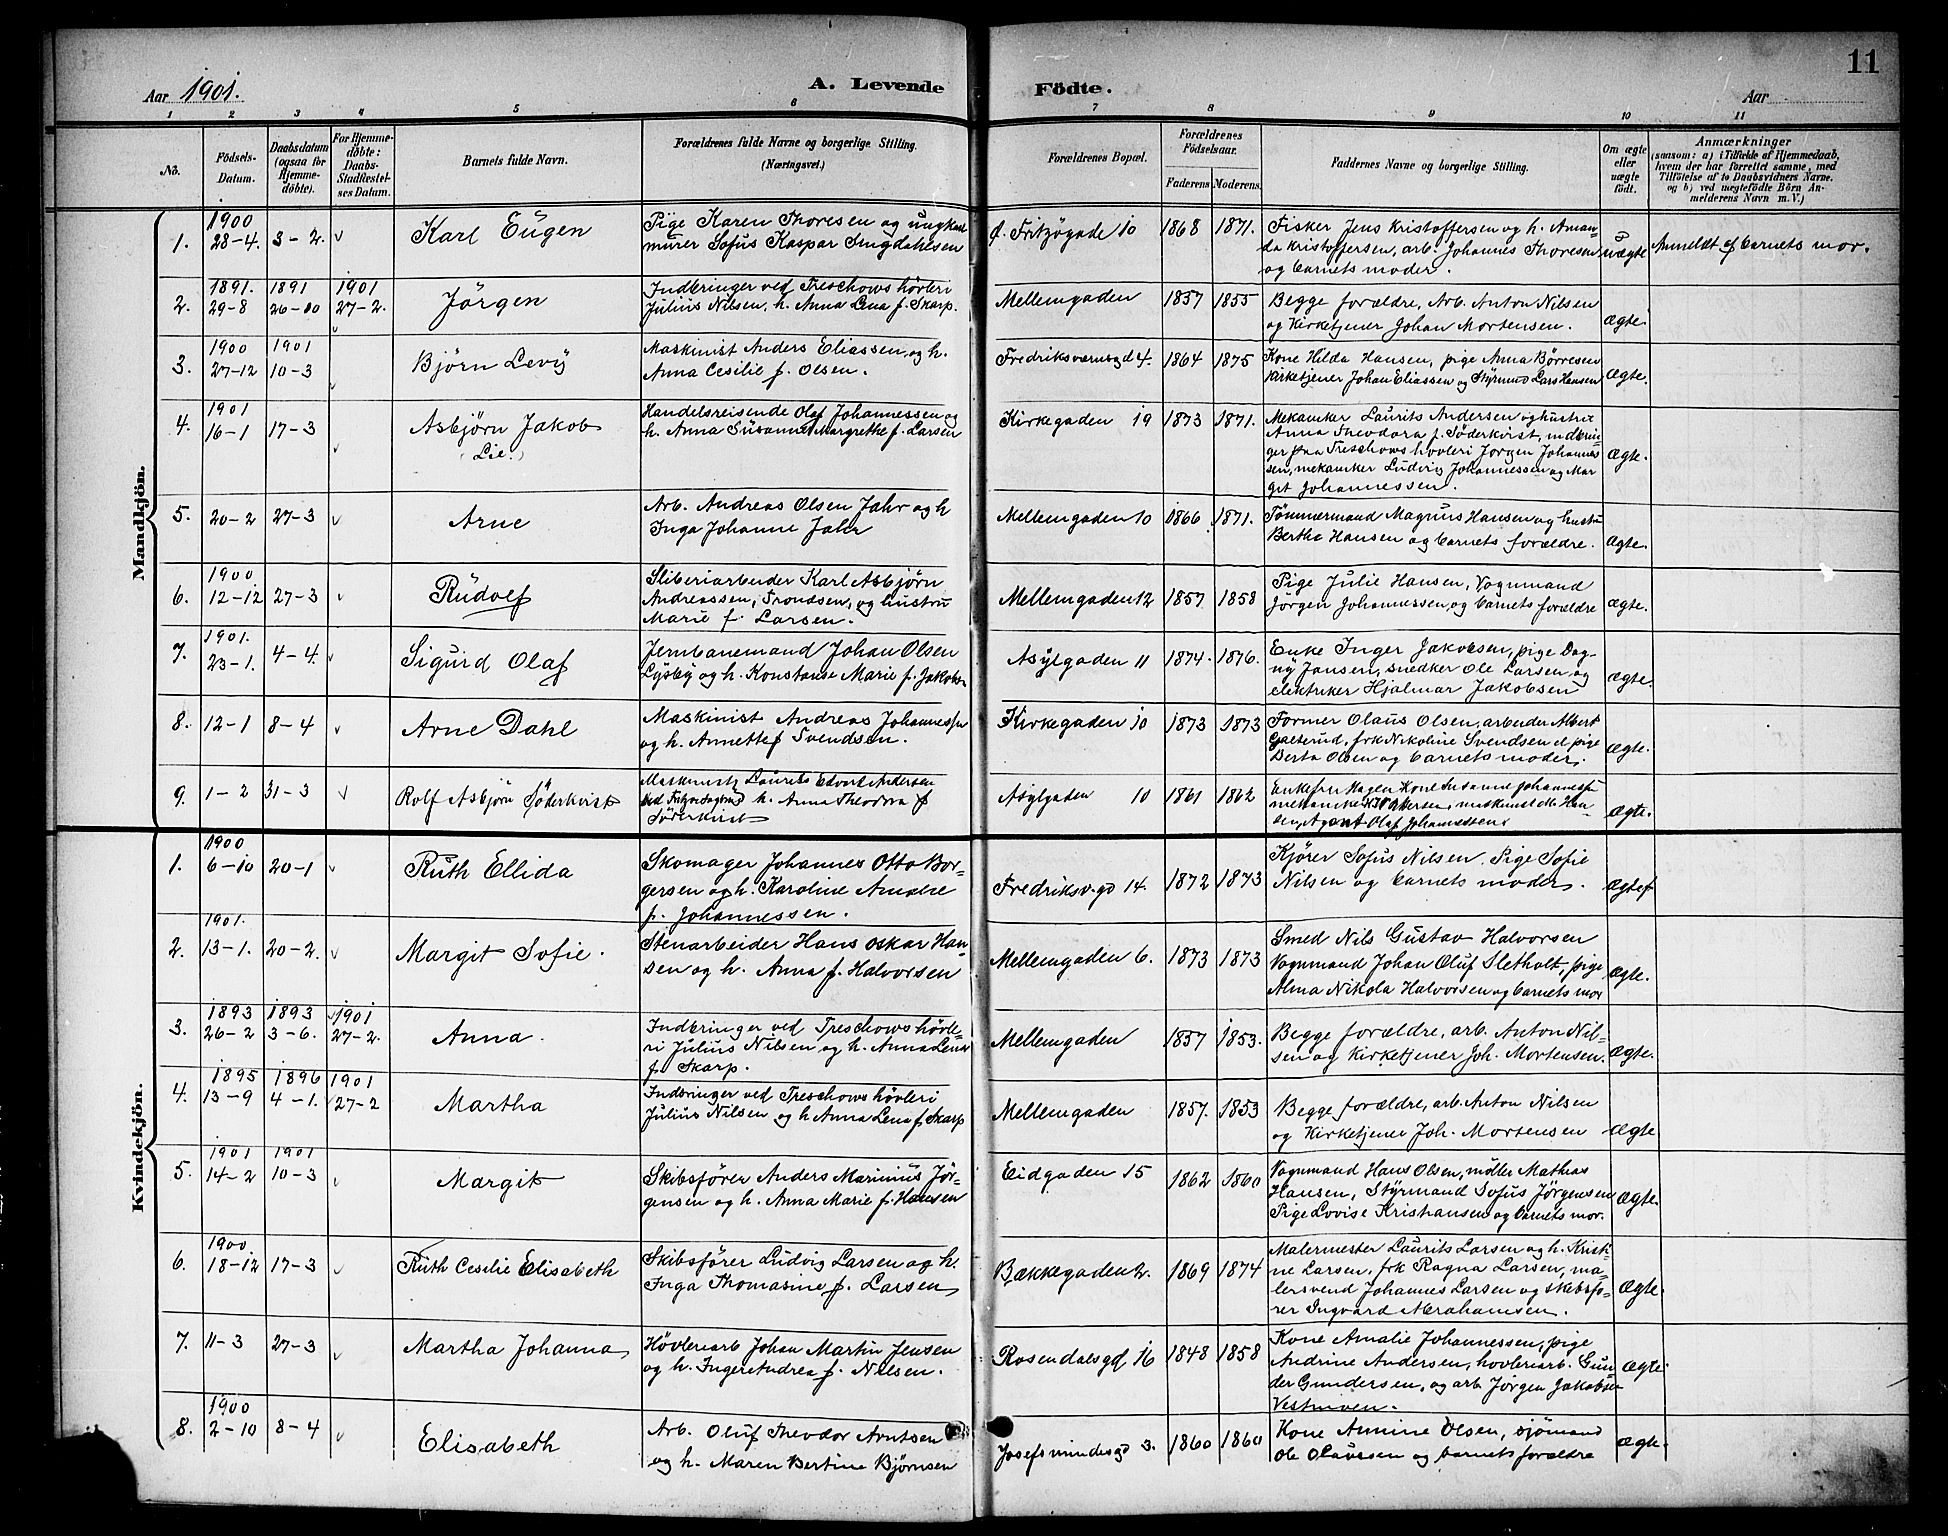 11
Aar 1901. A. Levende Födte. Aar
1 2 3 4 5 6 7 8 9 10 11
No.
Födsels-
Datum.
Daabsdatum
(ogsaa for
Hjemme-
döbte).
For Hjemme-
döbte:
Daabs-
Stadfæstel-
ses Datum.
Barnets fulde Navn.
Forældrenes fulde Navne og borgerlige Stilling.
(Næringsvei.)
Forældrenes Bopæl.
Forældrenes
Födselsaar.
Faderens Moderens.
Faddernes Navne og borgerlige Stilling.
Om ægte
eller
uægte
födt.
Anmærkninger
(saasom: a) i Tilfælde af Hjemmedaab,
hvem der har forrettet samme, med
Tilföielse af to Daabsvidners Navne,
og b) ved uægtefödte Börn An-
melderens Navn m. V.)
Mandkjön.
1. 1900
28-4. 3-2. v
Karl Eugen
Pige Karen Thoresen og ungkarl
murer Sofus Kaspar Ingdahlsen
f. Fritzögade 10 1868 1871.
Fisker Jens Kristoffersen og h. Aman-
da Kristoffersen, arb. Johannes Thoresen
og barnets moder.
uægte
Anmeldt af barnets mor.
2. 1891. 1891 1901
29-8 26-10 27-2. v
Jörgen
Indbringer ved Treschows hövleri
Julius Nilsen, h. Anna Lena f. Skarp.
Mellemgaden 1857 1855
Begge forældre, Arb. Anton Nilsen
og Kirketjener Johan Mortensen.
Ægte.
3. 1900 1901
27-12 10-3 v
Björn Levy
Maskinist Anders Eliassen, og h.
Anna Cesilie f. Olsen.
Fredriksværnsgd 4. 1864 1875
Kone Hilda Hansen, pige Anna Børresen
Kirketjener Johan Eliassen og Styrmnd Lars Hansen
Ægte.
4. 1901
16-1 17-3 v
Asbjørn Jakob
(Lie.)
Handelsreisende Olaf Johannessen og
h. Anna Susanne Margrethe f. Larsen
Kirkegaden 19 1873 1871.
Mekaniker Laurits Andersen og hustru
Anna Theodora f. Söderkvist, indbrin-
ger paa Treschows hövleri Jörgen Johannes-
sen, mekaniker Ludvig Johannessen og Mar
git Johannessen.
Ægte.
5. 20-2 27-3 v
Arne
Arb. Andreas Olsen Jahr og h
Inga Johanne Jahr
Mellemgaden 10 1866 1871.
Tömmermand Magnus Hansen og hustru
Bertha Hansen og barnets forældre.
Ægte.
6. 1900
12-12 27-3 v
Rudolf
Sliberiarbeider Karl Asbjørn
Andreassen, Trondsen, og hustru
Marie f. Larsen.
Mellemgaden 12 1857 1858
Pige Julie Hansen, Vognmand
Jörgen Johannessen, og barnets forældre
Ægte.
7. 1901.
23-1. 4-4. v
Sigurd Olaf
Jernbanemand Johan Olsen
Lysby og h. Konstanse Marie f. Jakobsen
Asylgaden 11 1874. 1876.
Enke Inger Jakobsen, pige Dag-
ny Jansen, snedker Ole Larsen, og
elektriker Hjalmar Jakobsen
Ægte.
8. 12-1 8-4 v
Arne Dahl
Maskinist Andreas Johannessen
og h. Annette f Svendsen.
Kirkegaden 10 1873 1873
Former Olaus Olsen, arbeider Albert
frk Nikoline Svendsen pige
Berta Olsen og barnets moder.
Ægte.
9. 1-2 31-3 v
Rolf Asbjørn Söderkvist
Maskinist Laurits Edvard Andersen
h. Anna Theodora f
Söderkvist
Asylgaden 10 1861 1862
Enkefru Hagen Kone Susanne Johannessen
mekaniker maskinist Ole Han
sen, Agent Olaf Johannessen
Ægte.
Kvindekjön.
1. 1900
6-10 20-1 v
Ruth Ellida
Skomager Johannes Otto Bor-
gersen og h. Karoline Amalie
f. Johannessen.
Fredriksv.gd 14. 1872 1873
Kjörer Sofus Nilsen, Pige Sofie
Nilsen og barnets moder.
Ægte
2. 1901.
13-1. 20-2. v
Margit Sofie.
Stenarbeider Hans Oskar Han-
sen og h. Anna f. Halvorsen
Mellemgaden 6. 1873 1873
Smed Nils Gustav Halvorsen
Vognmand Johan Oluf Sletholt, pige
Alma Nikola Halvorsen og barnets mor
Ægte.
3. 1893 1893 1901
26-2 3-6. 27-2.
Anna.
Indbringer ved Treschows hövle-
ri Julius Nilsen og h. Anna Lena
f. Skarp.
Mellemgaden 1857 1853.
Begge forældre, arb. Anton Nil-
sen og Kirketjener Joh. Mortensen.
Ægte.
4. 1895 1896 1901
13-9 4-1. 27-2
Martha
Indbringer ved Treschows hövleri
Julius Nilsen og h Anna Lena f. Skarp
Mellemgaden 1857. 1853
Begge forældre, arb. Anton Nilsen
og Kirketjener Joh. Mortensen
Ægte
5. 1901 1901
14-2 10-3 v
Margit
Skibsförer Anders Marinius Jör-
gensen og h. Anna Marie f. Hansen
Eidgaden 15 1862 1860
Vognmand Hans Olsen, møller Mathias
Hansen, Styrmand Sofus Jörgensen
Pige Lovise Kristiansen og barnets mor.
Ægte.
6. 1900
18-12 17-3 v
Ruth Cesilie Elisabeth
Skibsförer Ludvig Larsen og h.
Inga Thomasine f. Larsen
Bækkegaden 2. 1869 1874
Malermester Laurits Larsen og h. Kristi-
ne Larsen, frk Ragna Larsen, ma-
lersvend Johannes Larsen og skibsfø-
rer Ingvard Abrahamsen.
Ægte.
7. 11-3 27-3 v
Martha Johanna
Hövleriarb Johan Martin Jensen
og h. Inger Andrea f. Nilsen.
Rosendalsgd 16 1848 1858
Kone Amalie Johannessen, pige
Andrine Andersen, hovleriarb. Gun-
der Gundersen, og arb Jörgen Jakobsen
Vestmoen.
Ægte
8. 1900
2-10 8-4 v
Elisabeth
Arb. Oluf Theodor Arntsen
og h. Maren Bertine Bjørnsen
Josefsmindesgd 3. 1860 1860
Kone Annine Olsen, sjömand
Ole Olaussen og barnets forældre
Ægte.